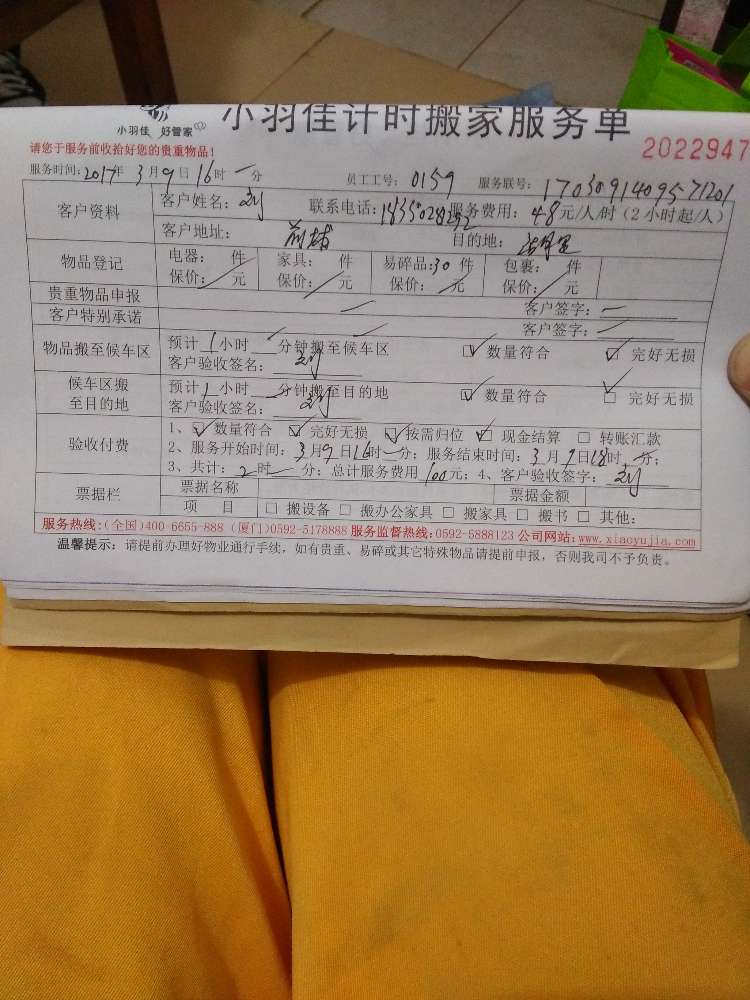 小羽佳 好管家
小羽佳计时搬家服务单
2022947
请您于服务前收拾好您的贵重物品！
服务时间：2017年 3月9日16时 分 员工工号：0159 服务联号：1703091409571201
客户资料 客户姓名： 联系电话： 服务费用：48元/人/时（2小时起/人）
客户地址： 目的地：
物品登记 电器： 件 家具： 件 易碎品：30件 包裹： 件
保价： 元 保价： 元 保价： 元 保价： 元
贵重物品申报 客户签字：
客户特别承诺 客户签字：
物品搬至候车区 预计1小时 分钟搬至候车区 ☑ 数量符合 ☑ 完好无损
客户验收签名：
候车区搬至目的地 预计1小时 分钟搬至目的地 ☑ 数量符合 ☑ 完好无损
客户验收签名：
验收付费 1、☑数量符合 ☑ 完好无损 ☑按需归位 ☑ 现金结算 □ 转账汇款
2、服务开始时间：3月9日16时 分；服务结束时间：3月9日18时 分；
3、共计：2时 分；总计服务费用100元；4、客户验收签字：
票据栏 票据名称 票据金额
项 目 □ 搬设备 □ 搬办公家具 □ 搬家具 □ 搬书 □ 其他：
服务热线：(全国)400-6655-888 (厦门)0592-5178888 服务监督热线：0592-5888123 公司网站：www.xiaoyujia.com
温馨提示：请提前办理好物业通行手续，如有贵重、易碎或其它特殊物品请提前申报，否则我司不予负责。